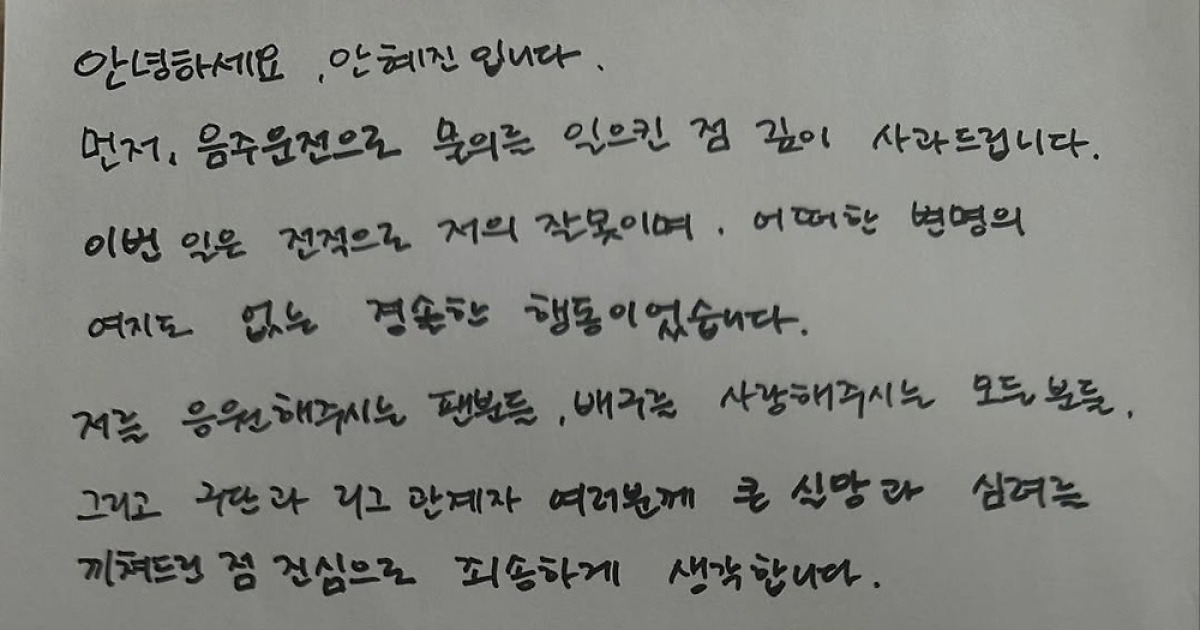 안녕하세요, 안혜진입니다.
먼저, 음주운전으로 물의를 일으킨 점 깊이 사과드립니다.
이번 일은 전적으로 저의 잘못이며, 어떠한 변명의
여지도 없는 경솔한 행동이었습니다.
저를 응원해주시는 팬분들, 배구를 사랑해주시는 모든 분들,
그리고 구단과 리그 관계자 여러분께 큰 실망과 심려를
끼쳐드린 점 진심으로 죄송하게 생각합니다.